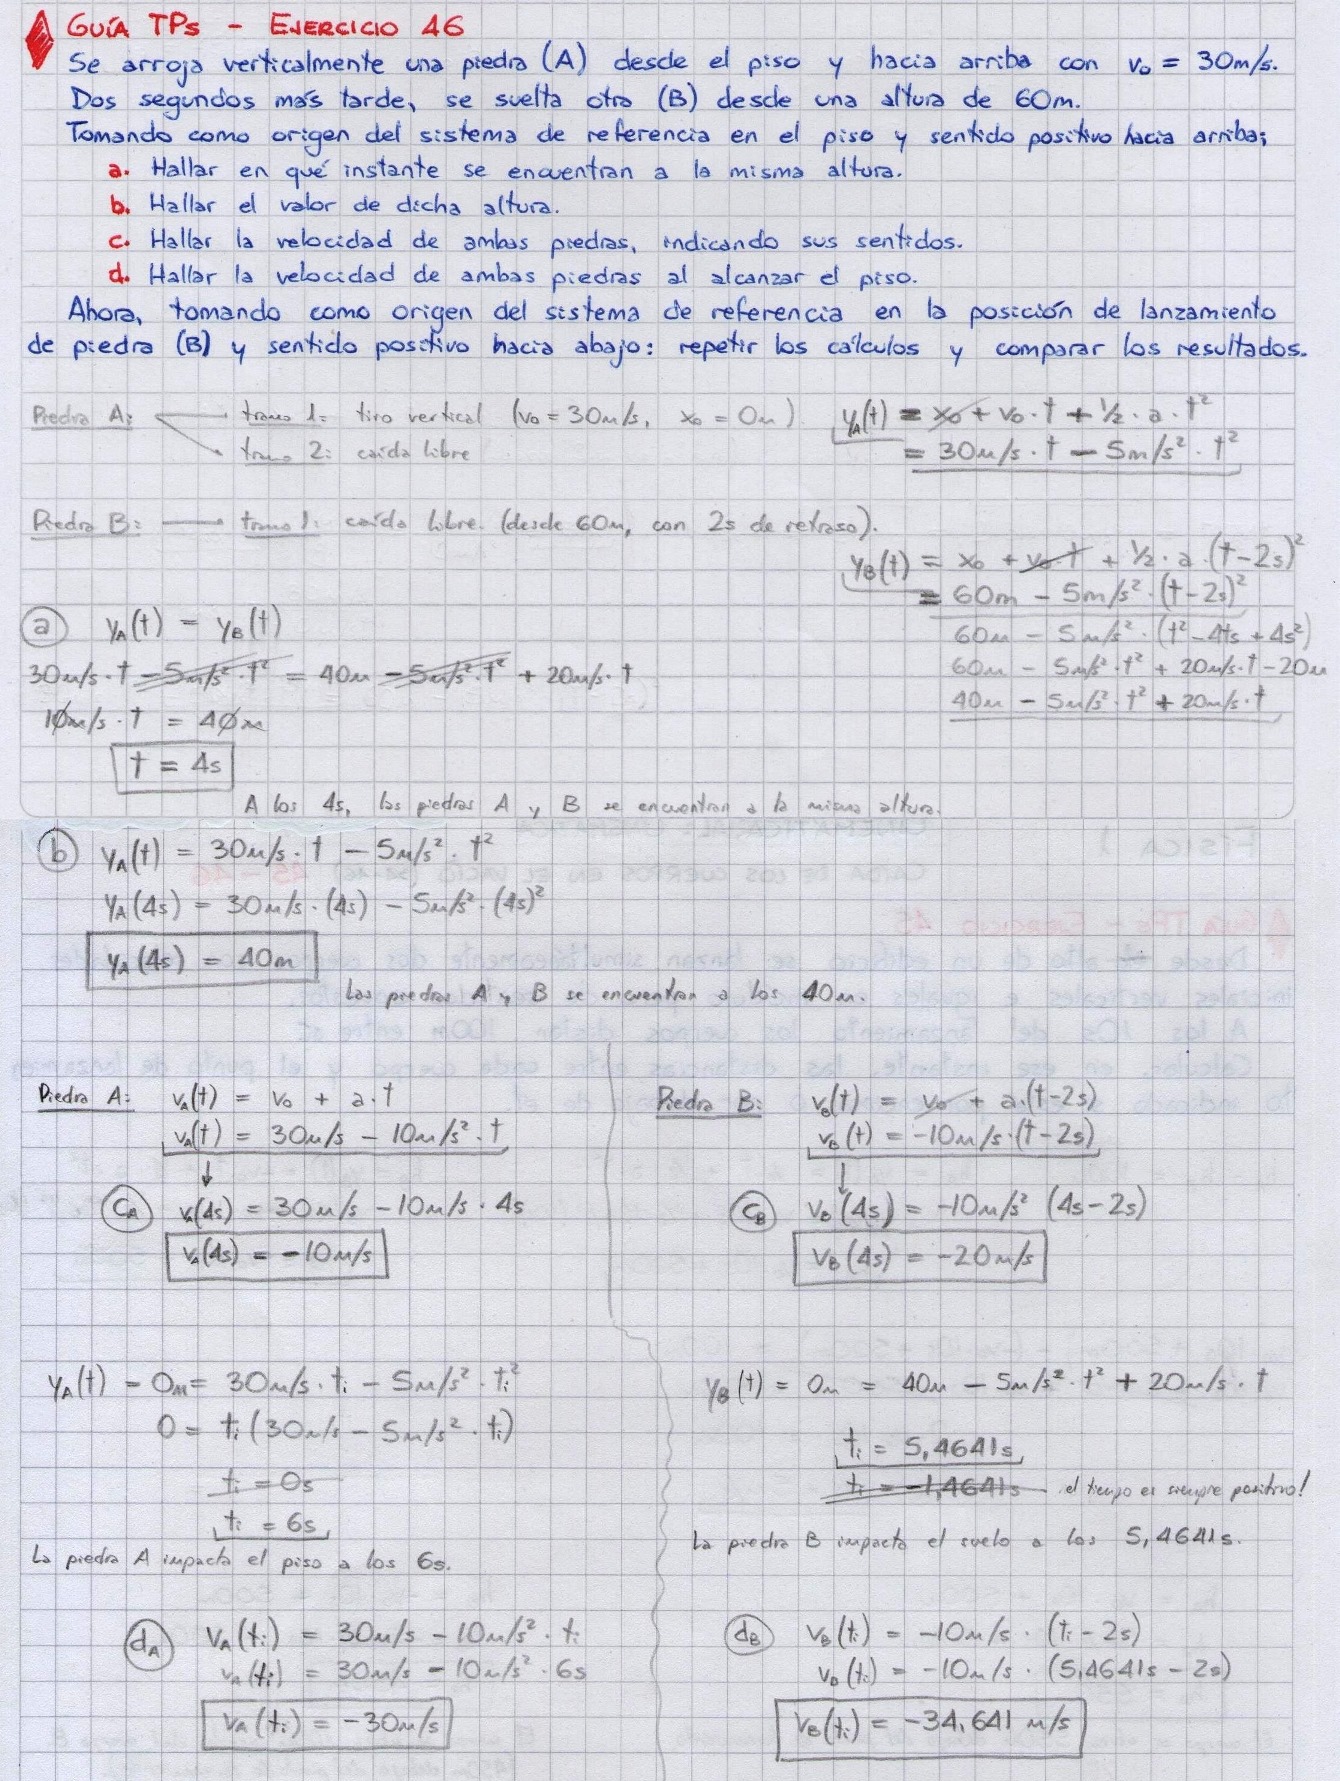 GUÍA TPs - EJERCICIO 46
Se arroja verticalmente una piedra (A) desde el piso y hacia arriba con v₀ = 30m/s.
Dos segundos más tarde, se suelta otra (B) desde una altura de 60m.
Tomando como origen del sistema de referencia en el piso y sentido positivo hacia arriba;
a. Hallar en qué instante se encuentran a la misma altura.
b. Hallar el valor de dicha altura.
c. Hallar la velocidad de ambas piedras, indicando sus sentidos.
d. Hallar la velocidad de ambas piedras al alcanzar el piso.
Ahora, tomando como origen del sistema de referencia en la posición de lanzamiento
de piedra (B) y sentido positivo hacia abajo: repetir los cálculos y comparar los resultados.
Piedra A: tramo 1: tiro vertical (v₀ = 30m/s, x₀ = 0m)
tramo 2: caída libre
y_A(t) = x₀ + v₀ · t + 1/2 · a · t²
= 30m/s · t - 5m/s² · t²
Piedra B: tramo 1: caída libre. (desde 60m, con 2s de retraso).
y_B(t) = x₀ + v₀ · t + 1/2 · a · (t-2s)²
= 60m - 5m/s² · (t-2s)²
60m - 5m/s² · (t² - 4ts + 4s²)
60m - 5m/s² · t² + 20m/s · t - 20m
40m - 5m/s² · t² + 20m/s · t
a y_A(t) = y_B(t)
30m/s · t - 5m/s² · t² = 40m - 5m/s² · t² + 20m/s · t
10m/s · t = 40m
t = 4s
A los 4s, las piedras A y B se encuentran a la misma altura.
b y_A(t) = 30m/s · t - 5m/s² · t²
y_A(4s) = 30m/s · (4s) - 5m/s² · (4s)²
y_A(4s) = 40m
Las piedras A y B se encuentran a los 40m.
Piedra A: v_A(t) = v₀ + a · t
v_A(t) = 30m/s - 10m/s² · t
c_A v_A(4s) = 30m/s - 10m/s · 4s
v_A(4s) = -10m/s
Piedra B: v_B(t) = v₀ + a · (t-2s)
v_B(t) = -10m/s · (t-2s)
c_B v_B(4s) = -10m/s² (4s-2s)
v_B(4s) = -20m/s
y_A(t) = 0m = 30m/s · tᵢ - 5m/s² · tᵢ²
0 = tᵢ (30m/s - 5m/s² · tᵢ)
tᵢ = 0s
tᵢ = 6s
La piedra A impacta el piso a los 6s.
y_B(t) = 0m = 40m - 5m/s² · t² + 20m/s · t
tᵢ = 5,4641s
tᵢ = -1,4641s el tiempo es siempre positivo!
La piedra B impacta el suelo a los 5,4641s.
d_A v_A(tᵢ) = 30m/s - 10m/s² · tᵢ
v_A(tᵢ) = 30m/s - 10m/s² · 6s
v_A(tᵢ) = -30m/s
d_B v_B(tᵢ) = -10m/s · (tᵢ - 2s)
v_B(tᵢ) = -10m/s · (5,4641s - 2s)
v_B(tᵢ) = -34,641 m/s